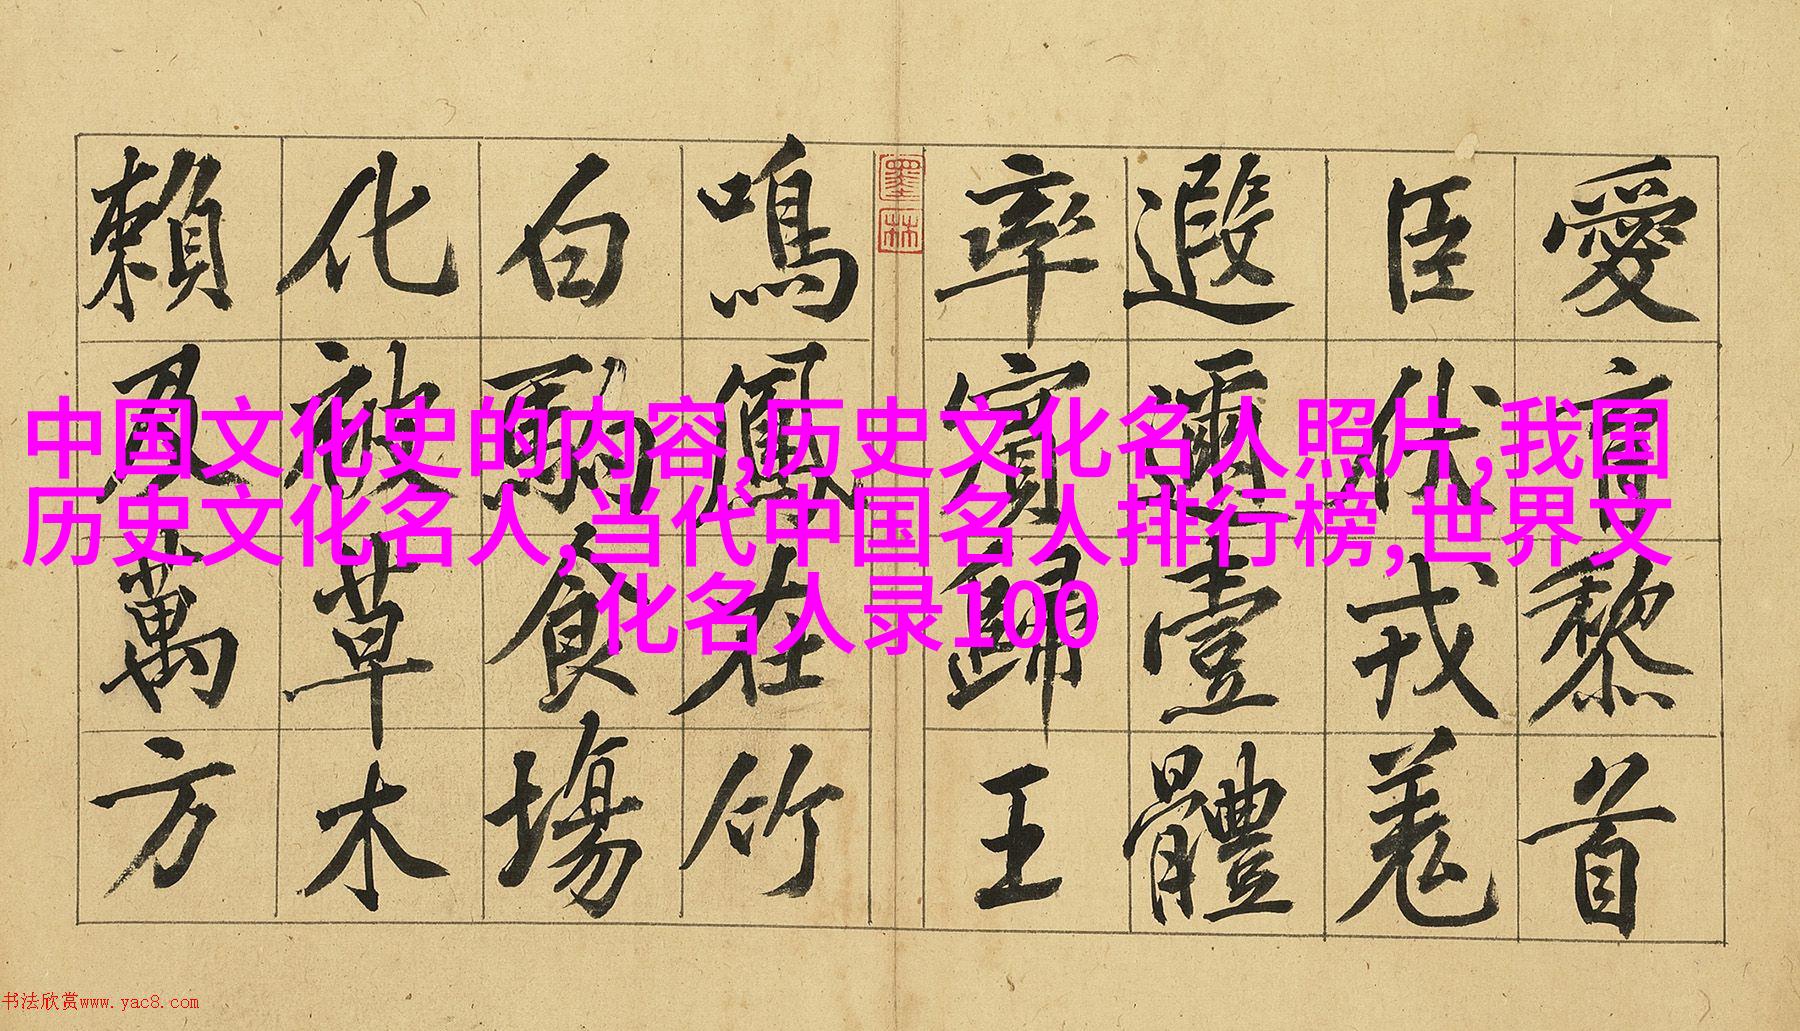 愛育黎首
臣伏戎羌
遐邇壹體
率賓歸王
墨林
鳴鳳在竹
白駒食場
化被草木
賴及萬方
中国文化史的内容,历史文化名人照片,我国
历史文化名人,当代中国名人排行榜,世界文
化名人录100
书法欣赏www.yac8.com